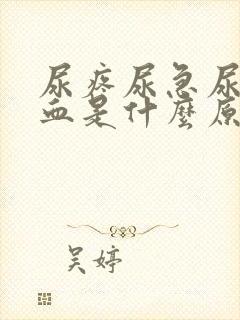 尿疼尿急尿
血是什麼原
吴婷